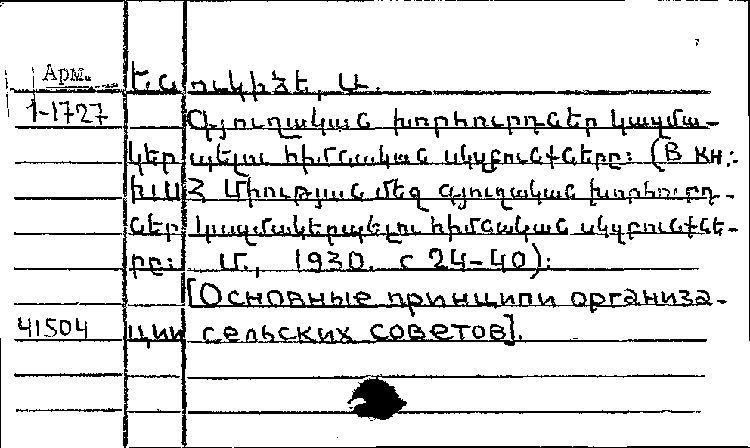 Арм.
1-1727
Ենուկիձե, Ա.
Գյուղական խորհուրդներ կազմա-
կերպելու հիմնական սկզբունքները: (В кн.:
ԽՍՀ Միության մեզ գյուղական խորհուրդ-
ներ կազմակերպելու հիմնական սկզբունքնե-
րը: Մ., 1930. с 24-40):
[Основные принципи организа-
41504 ции сельских советов].